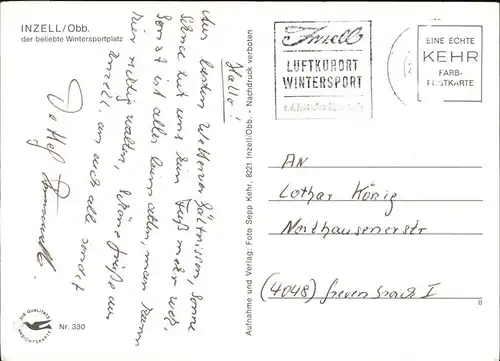 INZELL/Obb.
der beliebte Wintersportplatz
Hallo!
Aus besten Wetterverhältnissen, Sonne
Schnee tut uns kein Fuß mehr weh,
Sonst ist alles beim alten, man kann
hier richtig walten, schöne Grüße aus
Inzell, an euch alle sendet
Detlef
DIE QUALITÄTS
ANSICHTSKARTE
Nr. 330
Aufnahme und Verlag: Foto Sepp Kehr, 8221 Inzell/Obb. - Nachdruck verboten
Inzell
LUFTKURORT
WINTERSPORT
EINE ECHTE
KEHR
FARB-
POSTKARTE
AN
Lothar König
Northausenerstr
(4048) Grevenbroich I
B